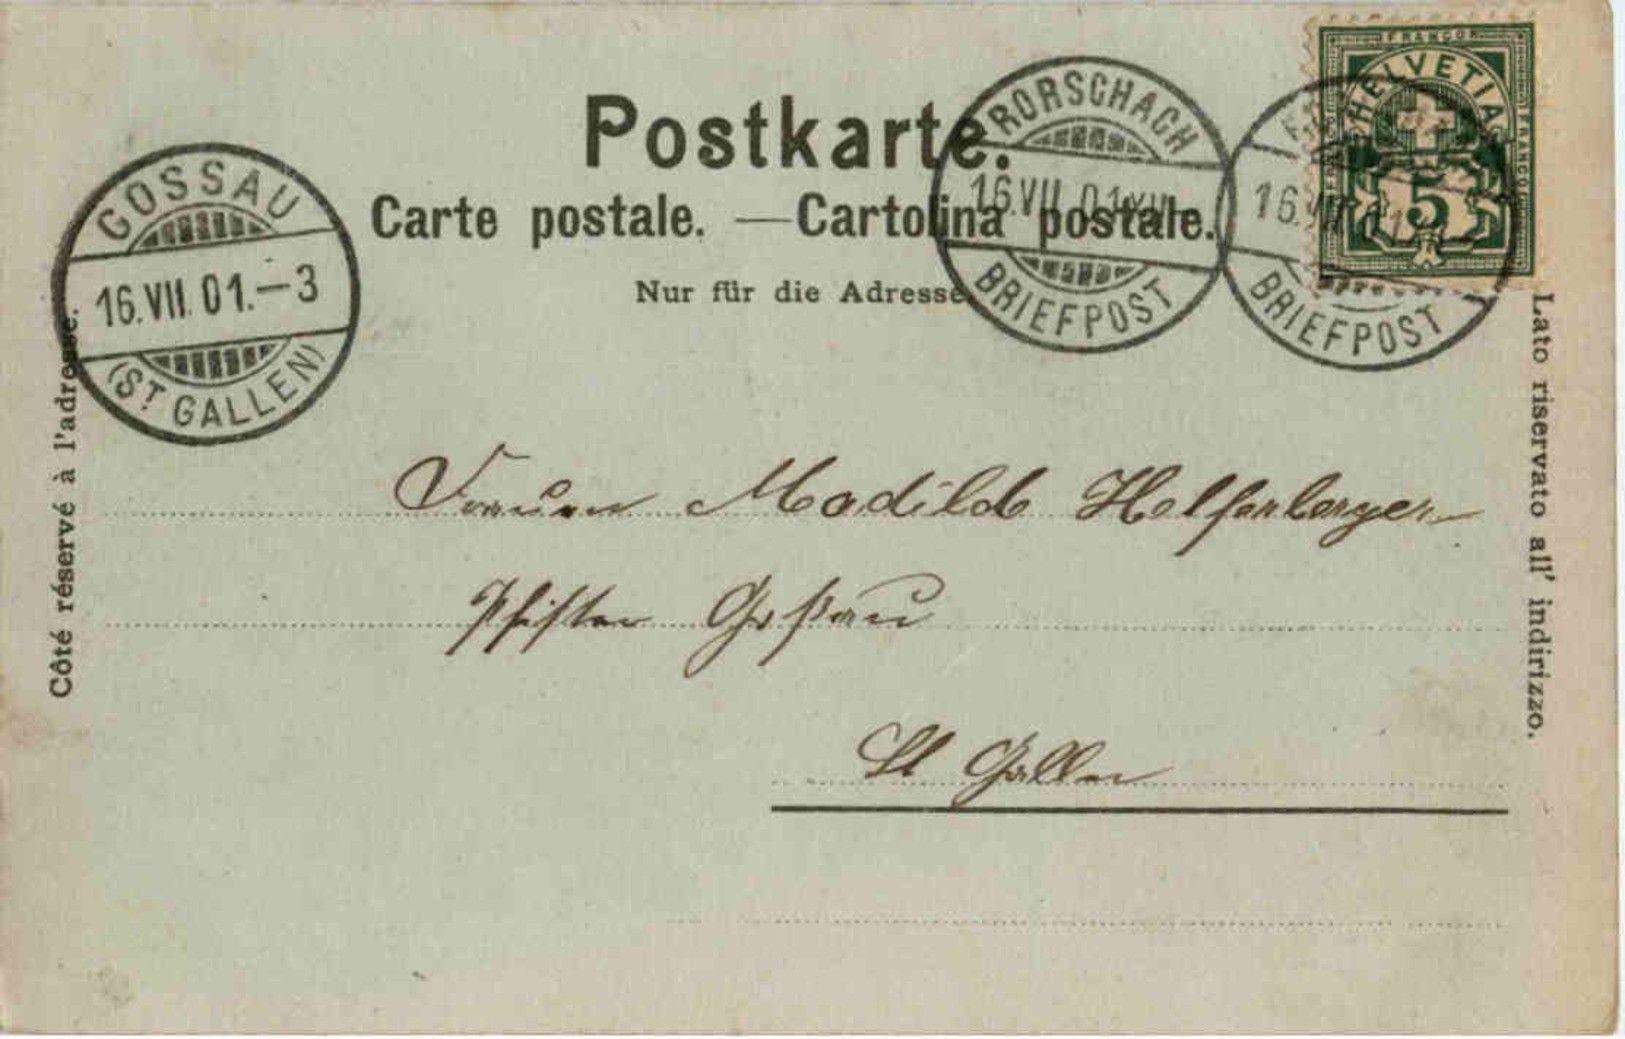 Postkarte.
Carte postale. — Cartolina postale.
Nur für die Adresse.
Côté réservé à l'adresse.
Lato riservato all' indirizzo.
GOSSAU
16.VII.01.—3
(ST GALLEN)
RORSCHACH
16.VII.01.XII—
BRIEFPOST
16.VII.01
BRIEFPOST
FRANCO
HELVETIA
FRANCO
FRANCO
5
Frauen Madilde
Goßau
St Gallen